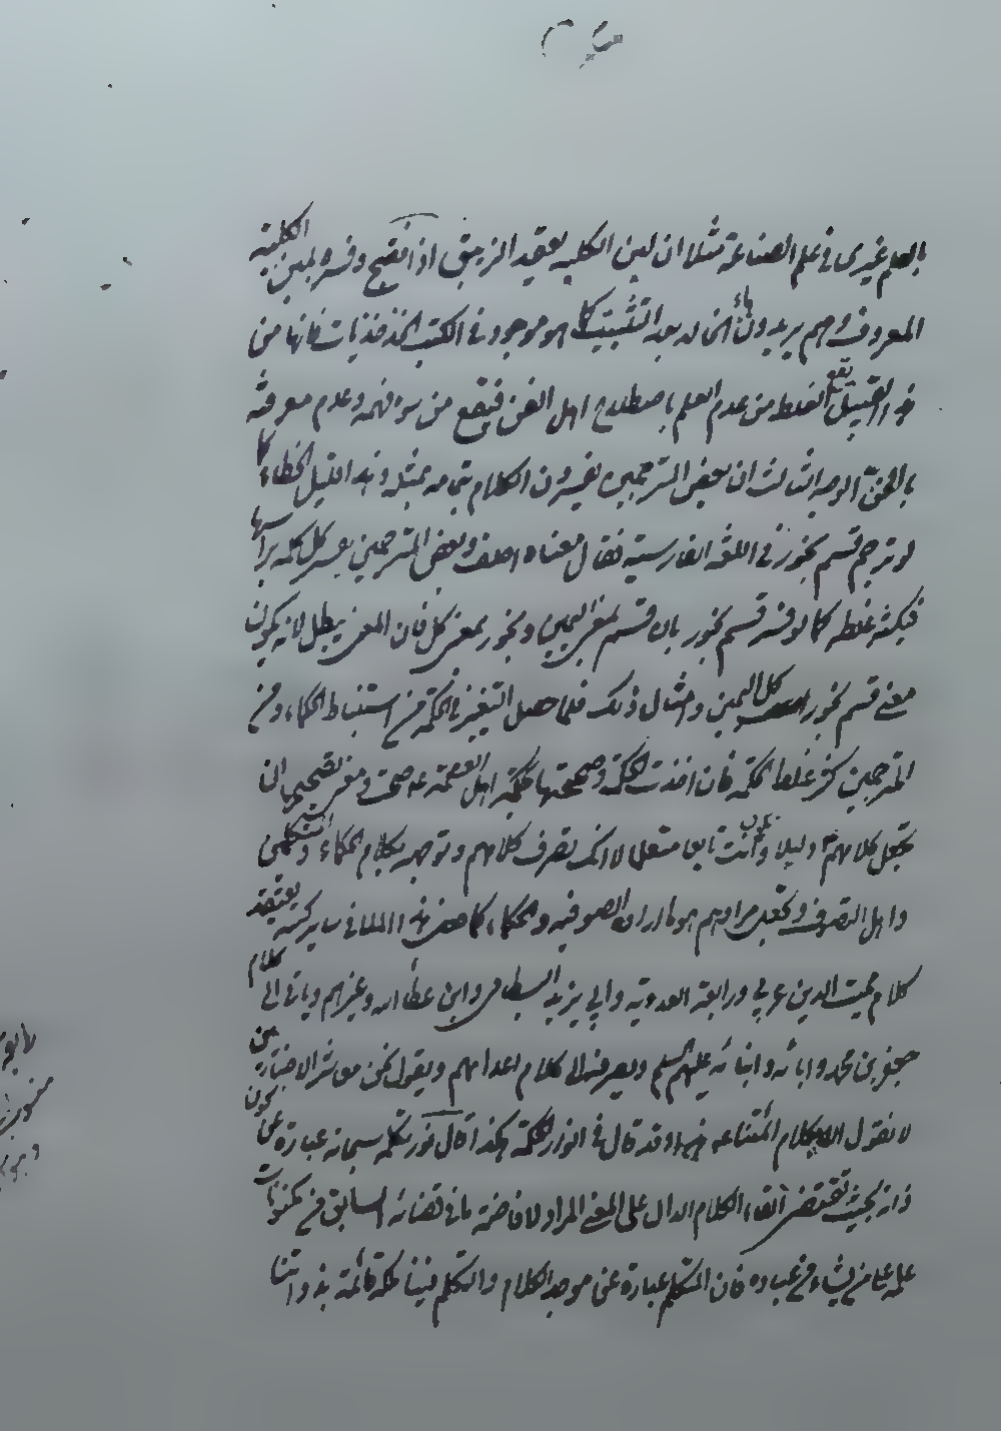 بالعلم غيرى في علم الصناعة مثلا ان لبن الكلبه يعقد الزيبق اذا نضج وفسره بلبن الكلبة
المعروف وهم يريدون ماء هو موجود في الكتب فانها من
هذا القبيل تقع الغلط من عدم العلم باصطلاح اهل الفن فيقع من سوء فهمه وعدم معرفته
بالفن الوجه الثالث ان بعض المترجمين يفسرون الكلام بتمامه بمثله وهذا قليل الخطاء كما
لو ترجم قسم بخور في اللغة الفارسية فقال معناه احلف وبعض المترجمين يفسر كل كلمة براسها
فيكثر غلطه كما لو فسر قسم بخور بان قسم بمعنى اليمين وبخور بمعنى كل فان المعنى يبطل لانه يكون
معنى قسم بخور كل اليمين وامثال ذلك فلما حصل التغيير في الحكمة من استنباط الحكماء ومن
المترجمين كثر غلط الحكمة فان اخذت الحكمة وصححتها بحكمة اهل العصمة صحت ومعنى تصحيحها ان
تجعل كلامهم دليلا وانت تابعا متعلما لا انك تصرف كلامهم وتوجهه بكلام الحكماء والمتكلمين
واهل التصوف وتجعل مرادهم هو ما اراده الصوفيه والحكماء كما صنع هذا الملا في ساير كتبه يعتقد
كلام مميت الدين عربي ورابعة العدويه وابي يزيد البسطامي وابن عطاء الله وغيرهم وياتي الى كلام
جعفر بن محمد وابائه وابنائه عليهم السلم ويصرفه الى كلام اعدائهم ويقول نحن معاشر الاخباريين
لا نقول الا بكلام ائمتنا وقد قال في انوار الحكمة هكذا قال نور تكلمه سبحانه عبارة عن كون
ذاته بحيث تقتضى القاء الكلام الدال على المعنى المراد لافاضة ما في قضائه السابق من مكنونات
علمه على من يشاء من عباده فان المتكلم عبارة عن موجد الكلام والتكلم فينا ملكة قائمة بذواتنا